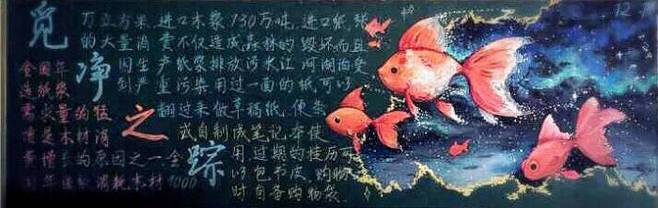 觅净之踪
万立方米,进口木浆130万吨,进口纸张
的大量消费不仅造成森林的毁坏而且
因生产纸浆排放污水让河湖泊受
到严重污染用过一面的纸,可以
翻过来做草稿纸,便条
或自制成笔记本使
用,过期的挂历可
以包书皮,购物
时自备购物袋.
全国年
造纸浆
需求量的猛
增是木材消
之一
木材1000